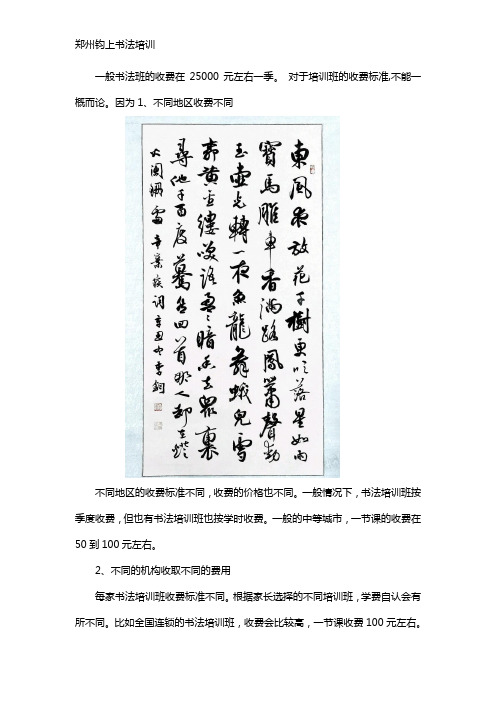 郑州钧上书法培训
一般书法班的收费在 25000 元左右一季。 对于培训班的收费标准,不能一
概而论。因为 1、不同地区收费不同
東風夜放花千樹更吹落星如雨
寶馬雕車香滿路鳳簫聲動
玉壺光轉一夜魚龍舞蛾兒雪
柳黃金縷笑語盈〻暗香去眾裏
尋他千百度驀然回首那人却在燈
火闌珊處 辛棄疾詞 辛丑
不同地区的收费标准不同，收费的价格也不同。一般情况下，书法培训班按
季度收费，但也有书法培训班也按学时收费。一般的中等城市，一节课的收费在
50 到 100 元左右。
2、不同的机构收取不同的费用
每家书法培训班收费标准不同。根据家长选择的不同培训班，学费自认会有
所不同。比如全国连锁的书法培训班，收费会比较高，一节课收费 100 元左右。